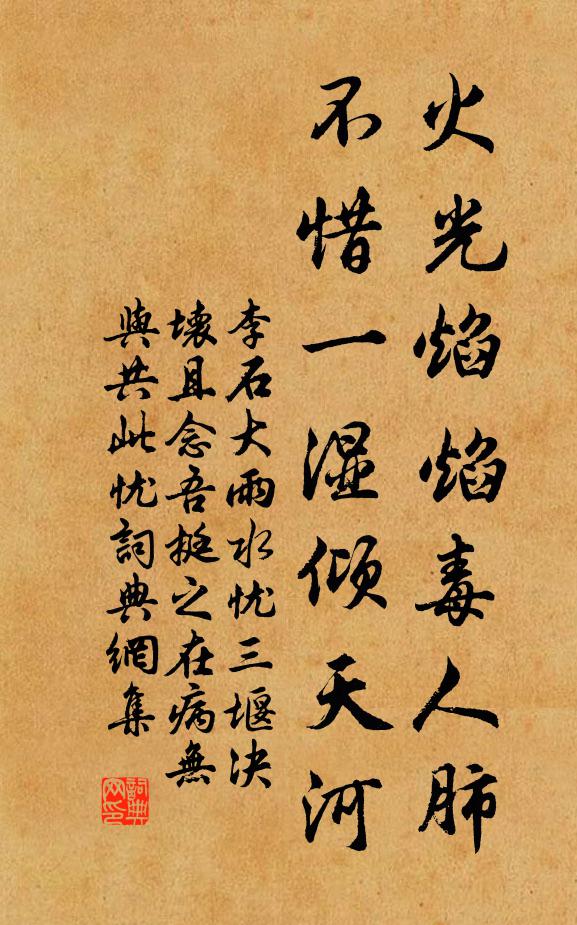 火光焰焰毒人肺
不惜一湿倾天河
李石大雨水忧三堰决
壊且念吾挺之在病無
與共此忧詞典網集
詞典
网印